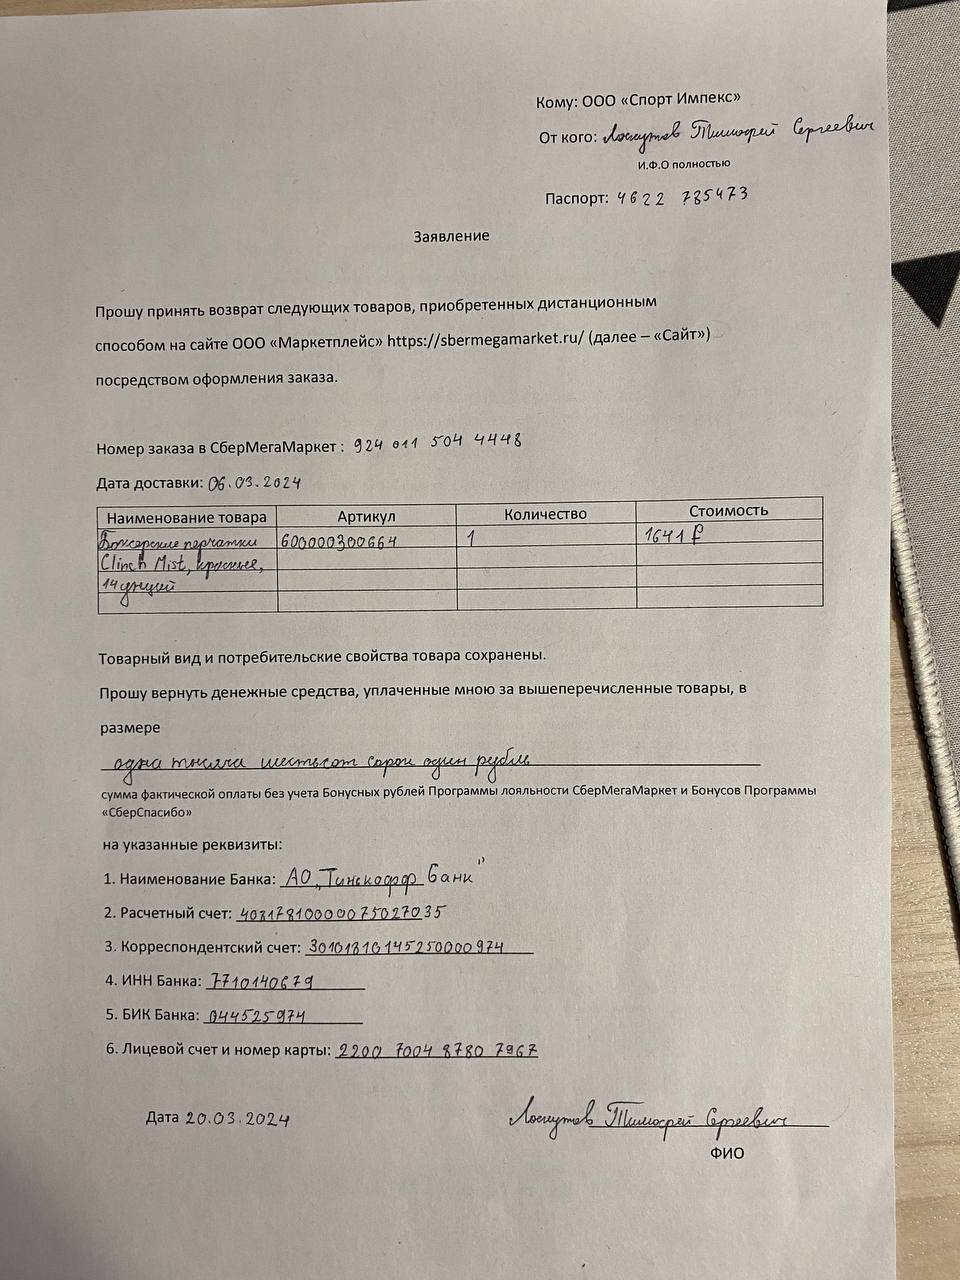 Кому: ООО «Спорт Импекс»
От кого: Лоскутов Тимофей Сергеевич
И.Ф.О полностью
Паспорт: 4622 785473
Заявление
Прошу принять возврат следующих товаров, приобретенных дистанционным
способом на сайте ООО «Маркетплейс» https://sbermegamarket.ru/ (далее – «Сайт»)
посредством оформления заказа.
Номер заказа в СберМегаМаркет : 924 011 504 4448
Дата доставки: 06.03.2024
Наименование товара Артикул Количество Стоимость
Боксерские перчатки 600000300664 1 1641 ₽
Clinch Mist, красные,
14 унций
Товарный вид и потребительские свойства товара сохранены.
Прошу вернуть денежные средства, уплаченные мною за вышеперечисленные товары, в
размере
одна тысяча шестьсот сорок один рубль
сумма фактической оплаты без учета Бонусных рублей Программы лояльности СберМегаМаркет и Бонусов Программы
«СберСпасибо»
на указанные реквизиты:
1. Наименование Банка: АО „Тинькофф Банк"
2. Расчетный счет: 40817810000075027035
3. Корреспондентский счет: 30101810145250000974
4. ИНН Банка: 7710140679
5. БИК Банка: 044525974
6. Лицевой счет и номер карты: 2200 7004 8780 7967
Дата 20.03.2024 Лоскутов Тимофей Сергеевич
ФИО